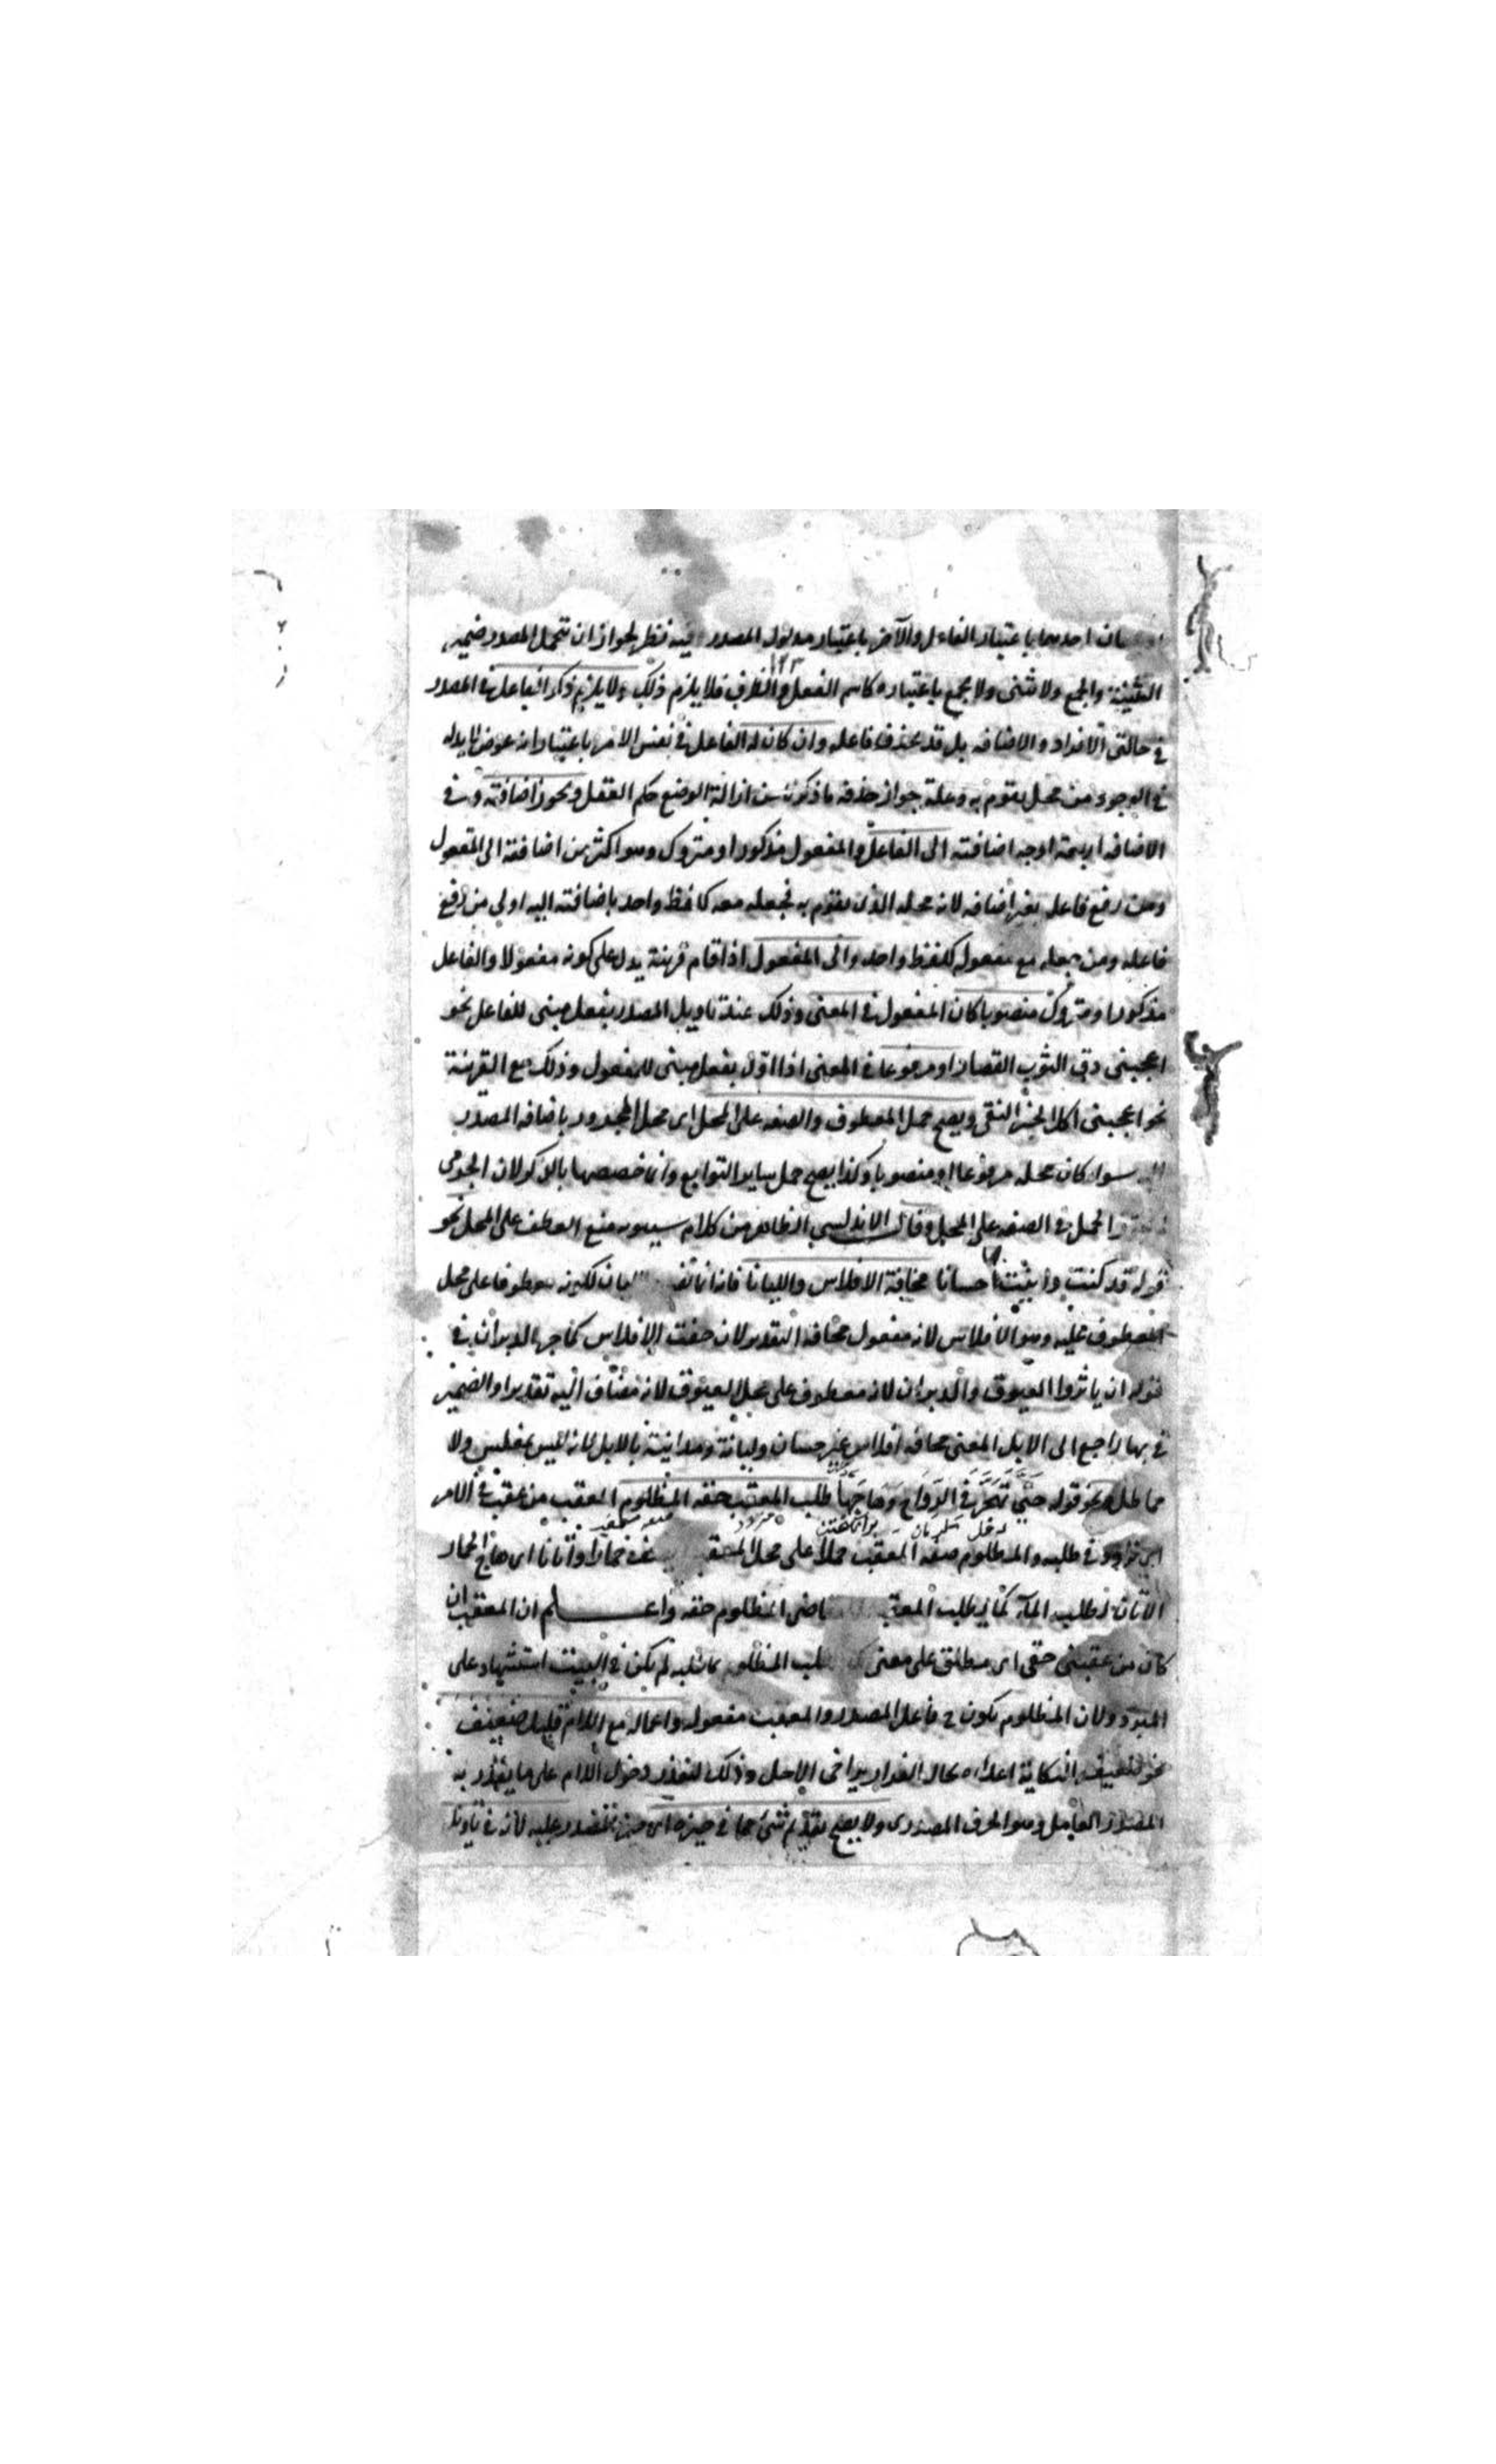 احدهما باعتبار الفاعل والآخر باعتبار مدلول المصدر فيه نظر لجواز ان يتحمل المصدر ضمير
التثنية والجمع ولا يثنى ولا يجمع باعتباره كاسم الفعل والظرف فلا يلزم ذلك ولا يلزم ذكر الفاعل في المصدر
في حالتي الافراد والاضافه بل قد يحذف فاعله وان كان له الفاعل في نفس الامر باعتبار انه عرض لا بد له
في الوجود من محل يقوم به وعلة جواز حذفه ما ذكرنا من ازالة الوضع حكم الفعل ويجوز اضافته وفي
الاضافه اربعة اوجه اضافته الى الفاعل والمفعول مذكور او متروك وهو اكثر من اضافته الى المفعول
ومن رفع فاعله بغير اضافه لانه محله الذي يقوم به فجعله معه كلفظ واحد باضافته اليه اولى من رفع
فاعله ومن جعله مع مفعوله كلفظ واحد والى المفعول اذا قام قرينة يدل على كونه مفعولا والفاعل
مذكور او متروك منصوبا كان المفعول في المعنى وذلك عند تاويل المصدر بفعل مبنى للفاعل نحو
اعجبنى دق الثوب القصار او مرفوعا في المعنى اذا اول بفعل مبنى للمفعول وذلك مع القرينة
نحو اعجبنى اكل الخبز النقى ويصح حمل المعطوف والصفه على المحل اى محل المجرور باضافه المصدر
سواء كان محله مرفوعا او منصوبا وكذا يصح حمل ساير التوابع وانما خصصها بالذكر لان الجرمى
الحمل في الصفه على المحل وقال الاندلسي الظاهر من كلام سيبويه منع العطف على المحل نحو
قوله قد كنت داينت بها حسانا مخافة الافلاس والليانا فان لكونه معطوفا على محل
المعطوف عليه وهو الافلاس لانه مفعول مخافه التقدير لان خفت الافلاس كما جر الدبران في
قوله ان ياثروا العيوق والدبران لانه معطوف على محل العيوق لانه مضاف اليه تقديرا والضمير
في بها راجع الى الابل المعنى مخافه افلاس غير حسان وليانه ومداينته بالابل لانه ليس بمفلس ولا
مماطل ونحو قوله حتى تهجر في الرواح وهاجها طلب المعقب حقه المظلوم المعقب من عقب في الامر
في طلبه والمظلوم صفه المعقب حملا على محل حمارا واتانا اى هاج الحمار
الاتان لطلب المآء كما يطلب المظلوم حقه واعلم ان المعقب ان
كان من عقبنى حقى اى مطلق على معنى المظلوم لم يكن في البيت استشهاد على
المبرد ولان المظلوم يكون ح فاعل المصدر والمعقب مفعوله واعماله مع اللام قليل ضعيف
نحو ضعيف النكاية اعداءه يخال الفرار يراخى الاجل وذلك لتعذر دخول اللام على ما يقدر به
المصدر العامل وهو الحرف المصدرى ولا يصح تقديم شئ مما في حيزه عليه لانه في تاويل